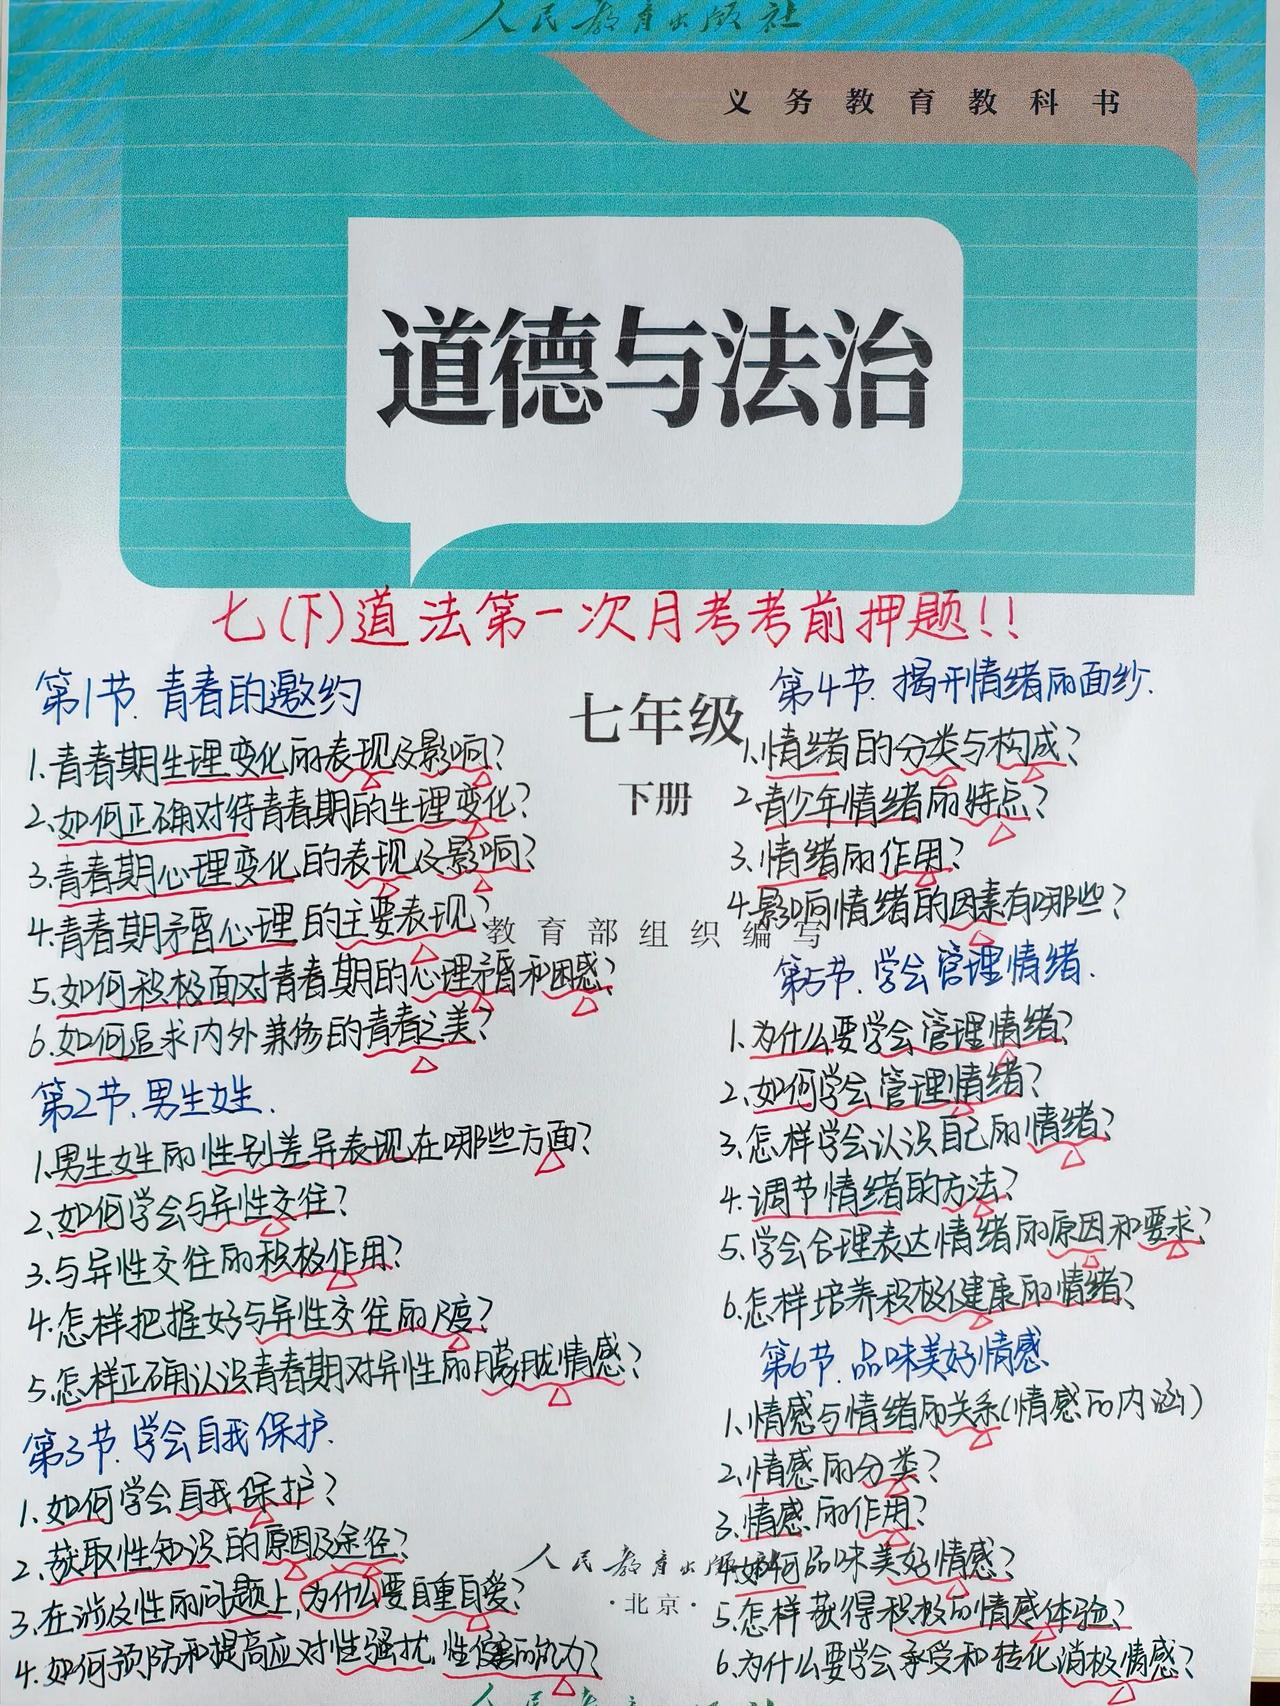 人民教育出版社
义务教育教科书
道德与法治
七(下)道法第一次月考考前押题!!
七年级
下册
教育部组织编写
第1节.青春的邀约
1.青春期生理变化的表现及影响?
2.如何正确对待青春期的生理变化?
3.青春期心理变化的表现及影响?
4.青春期矛盾心理的主要表现?
5.如何积极面对青春期的心理矛盾和困惑?
6.如何追求内外兼修的青春之美?
第2节.男生女生.
1.男生女生的性别差异表现在哪些方面?
2.如何学会与异性交往?
3.与异性交往的积极作用?
4.怎样把握好与异性交往的尺度?
5.怎样正确认识青春期对异性的朦胧情感?
第3节.学会自我保护.
1.如何学会自我保护?
2.获取性知识的原因及途径?
3.在涉及性的问题上,为什么要自重自爱?
4.如何预防和提高应对性骚扰,性侵害的能力?
第4节.揭开情绪的面纱.
1.情绪的分类与构成?
2.青少年情绪的特点?
3.情绪的作用?
4.影响情绪的因素有哪些?
第5节.学会管理情绪.
1.为什么要学会管理情绪?
2.如何学会管理情绪?
3.怎样学会认识自己的情绪?
4.调节情绪的方法?
5.学会合理表达情绪的原因和要求?
6.怎样培养积极健康的情绪?
第6节.品味美好情感
1.情感与情绪的关系(情感的内涵)
2.情感的分类?
3.情感的作用?
4.如何品味美好情感?
5.怎样获得积极的情感体验?
6.为什么要学会承受和转化消极情感?
人民教育出版社
·北京·
人民教育出版社